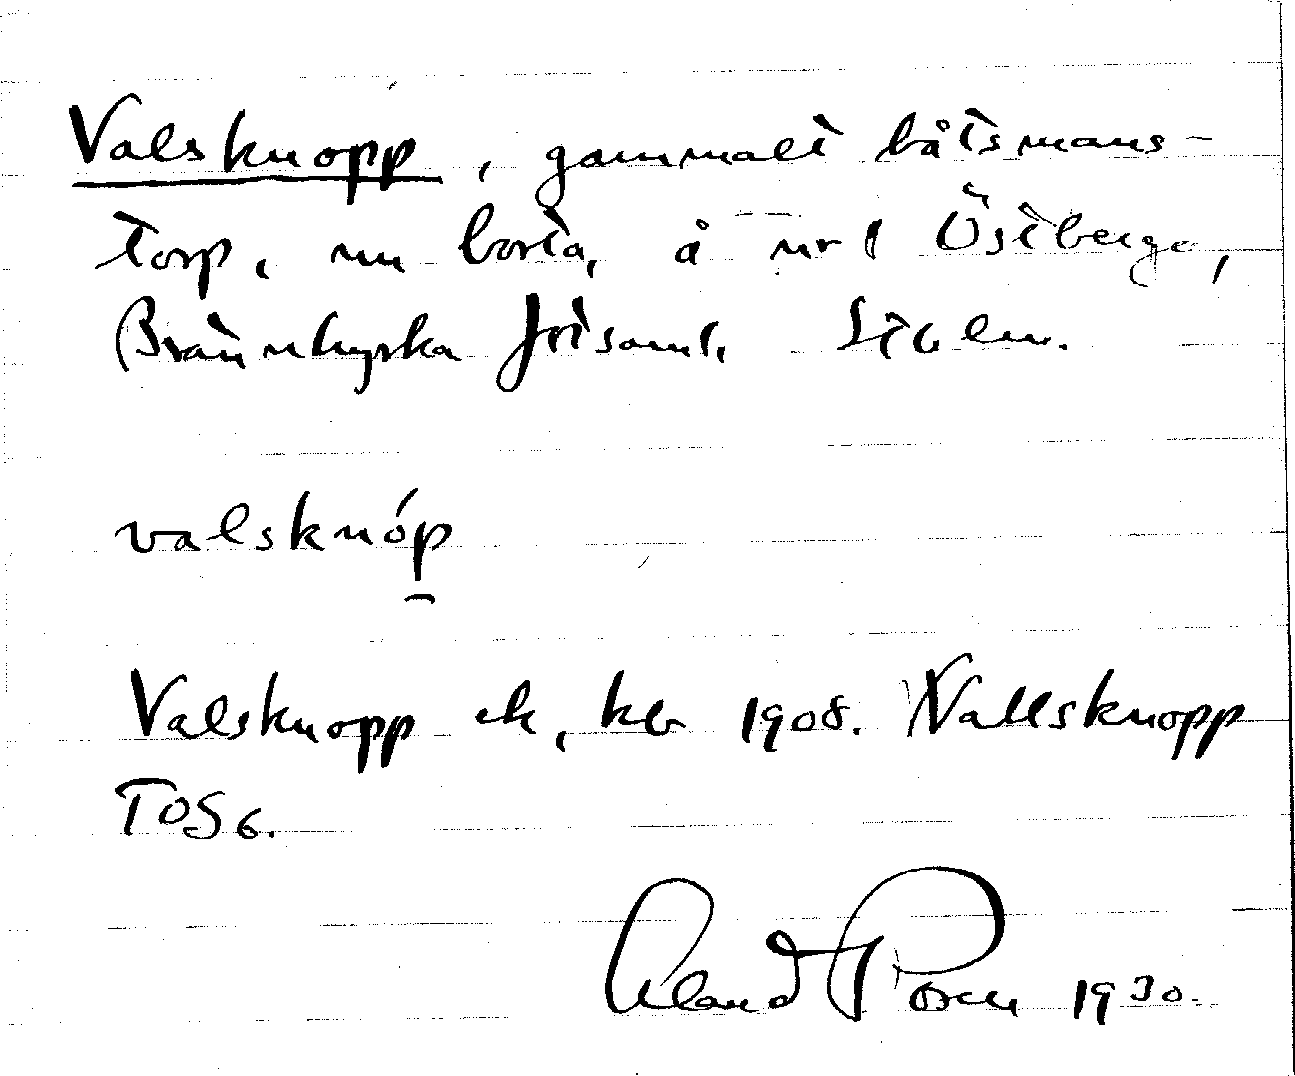 Valsknopp, gammalt båtsmans-
torp, nu borta, å nr 1 Östberga,
Brännkyrka förs Sthlm.
valsknóp
Valsknopp ek, kb 1908. Vallsknopp
TOS 6.
1930.